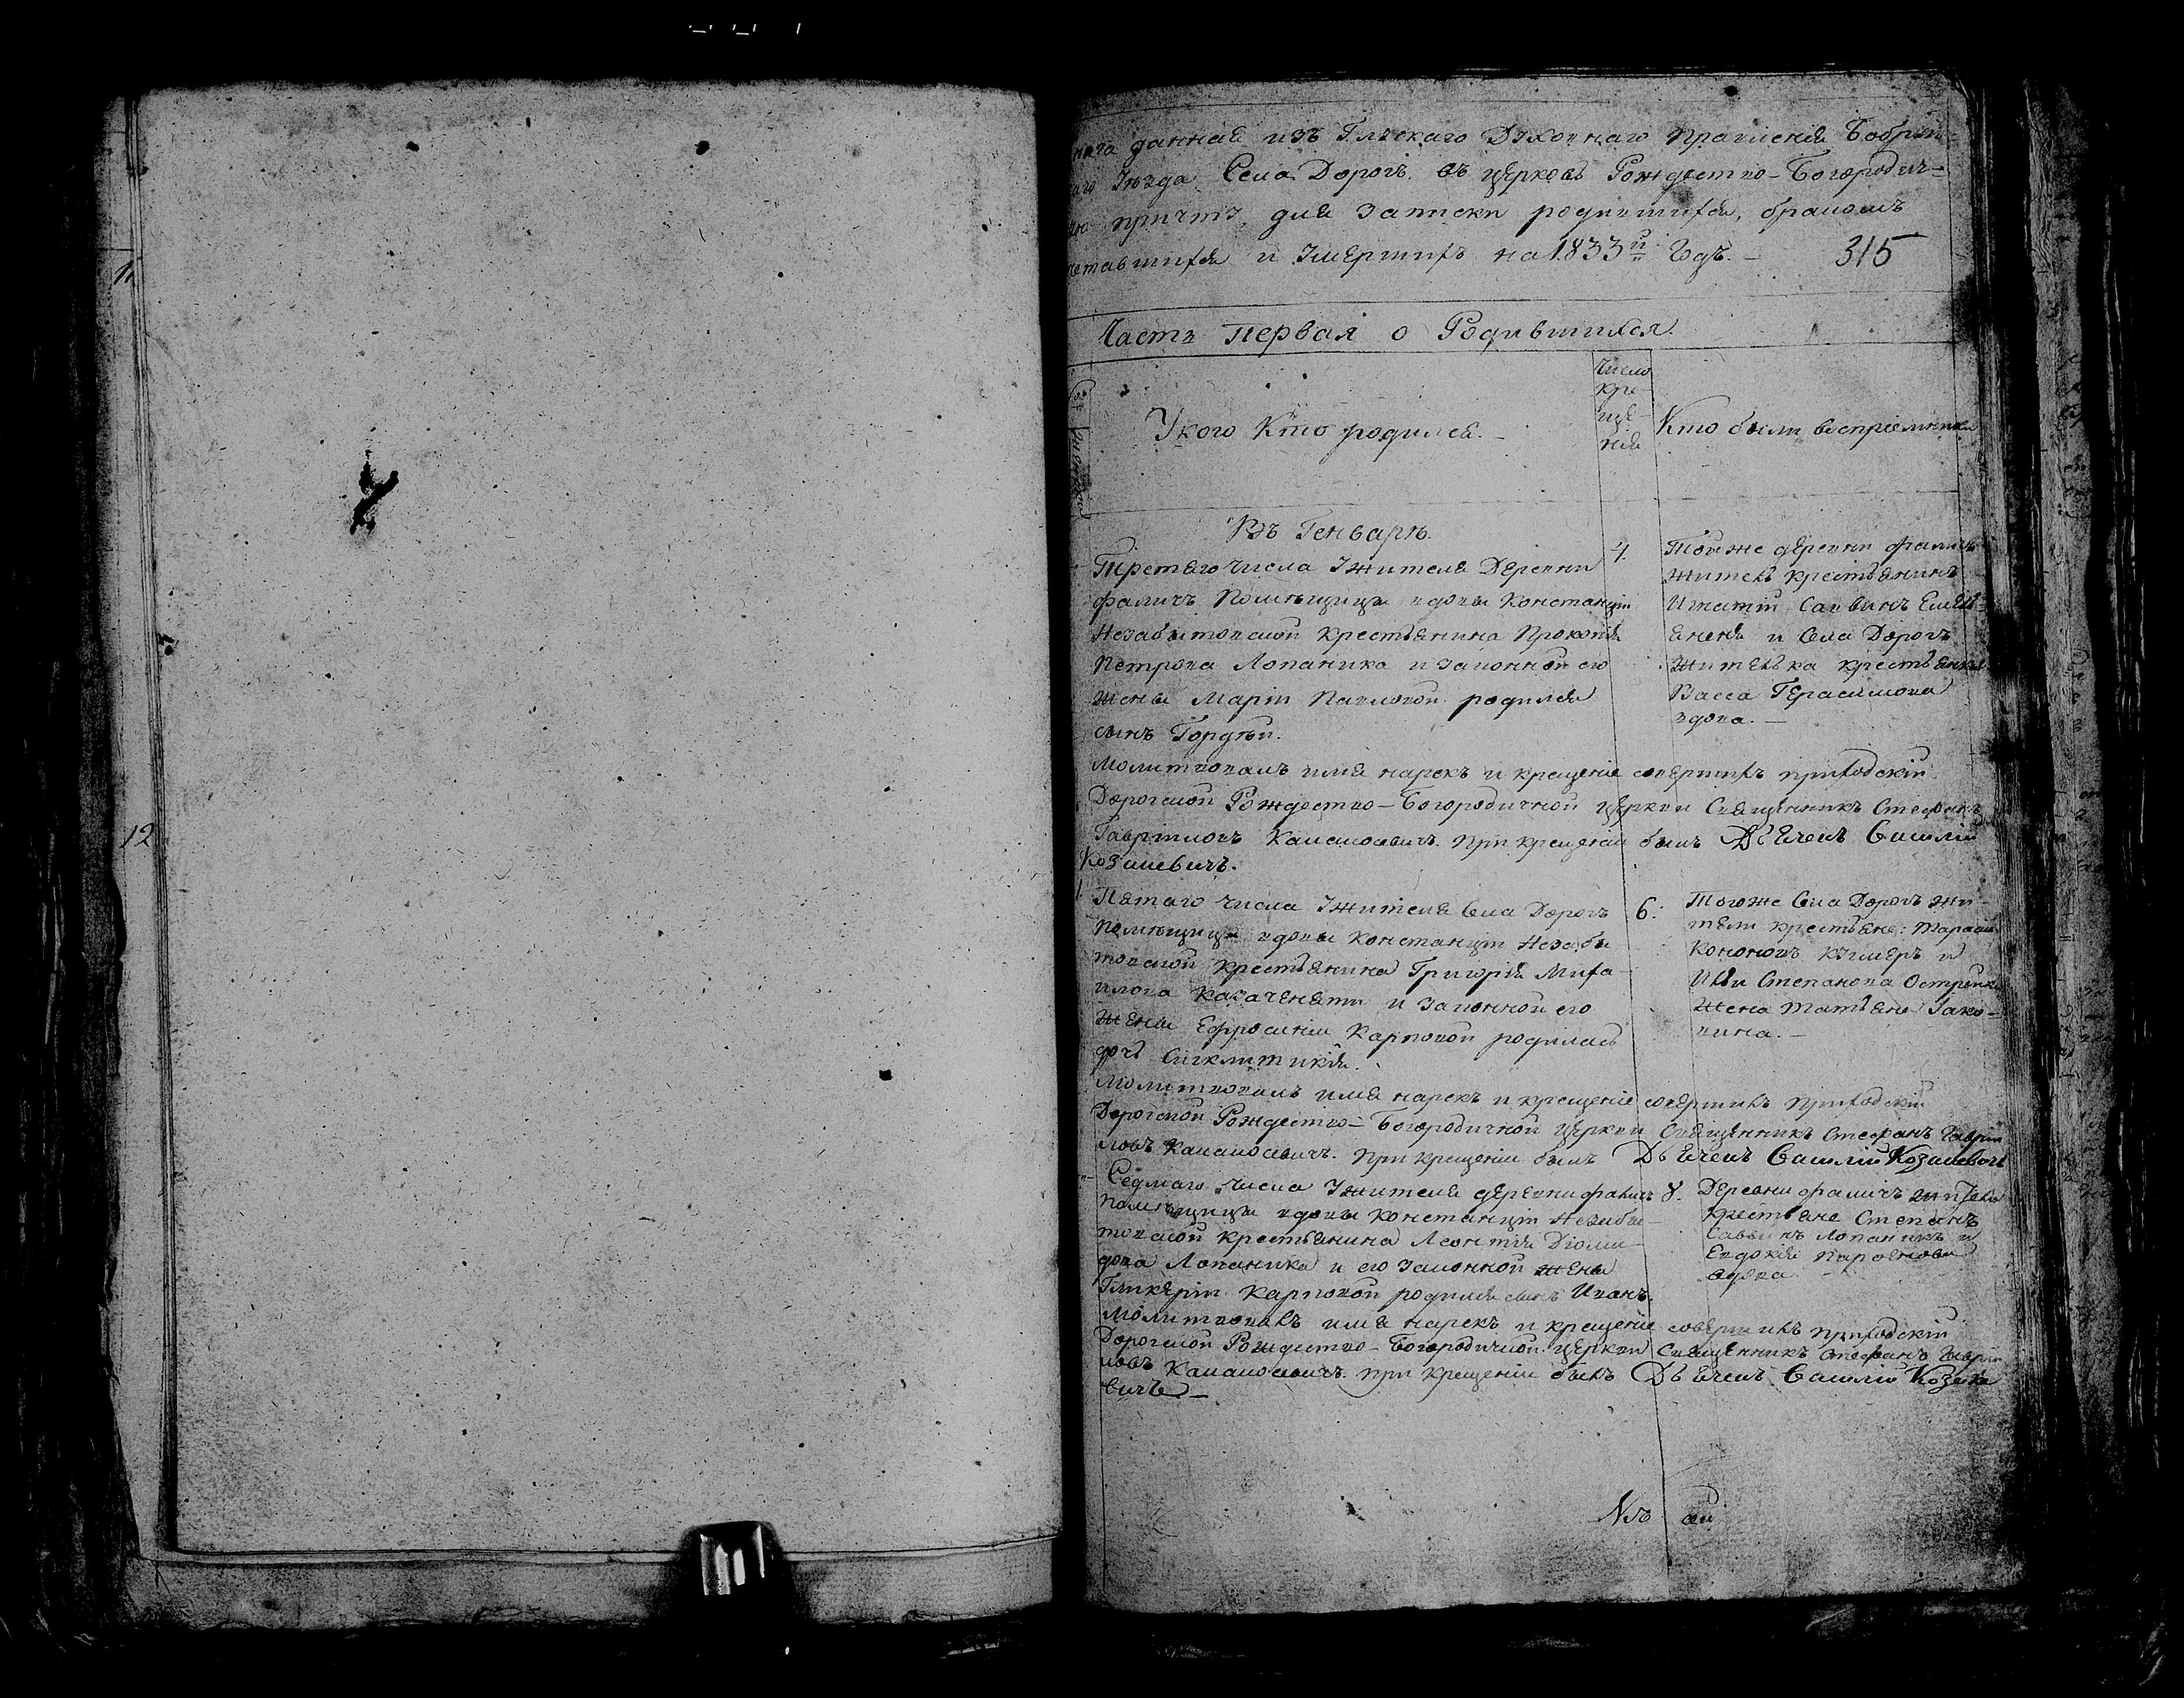 11
12
данная изъ Глускаго Духовнаго Правленія Бобруй-
Уѣзда Села Дорогъ въ церковь Рождество-Богородич-
причту для записки родившихся, бракомъ
и Умершихъ на 1833й Годъ. 315
Часть первая о Родившихся.
Укого Кто родился.
Число
Кре-
ще-
нія
Кто были воспріемники
Въ Генварѣ.
Третяго числа Ужителя Деревни
Фаличъ Помѣщицы вдовы Констанціи
Незабытовской Крестьянина Прокопія
Петрова Лопаника и законной его
жены Маріи Павловой родился
сынъ Гордѣй.
4.
Тойже деревни Фаличъ
житель крестьянинъ
Игнатій Саввинъ
и Села Дорогъ
жителька крестьянка
Васса Герасимова
вдова.
Молитвовалъ имя нарекъ и крещеніе совершилъ приходскій
Дорогской Рождество-Богородичной церкви Священникъ Стефанъ
Гавріиловъ при крещеніи былъ Дьячекъ Василій
Козакевичъ.
Пятаго числа Ужителя Села Дорогъ
Помѣщицы вдовы Констанціи Незабы
товской крестьянина Григорія Миха-
илова Казаченяти и законной его
жены Ефросиніи Карповой родилась
дочь Сигклитикія.
6.
Тогоже Села Дорогъ жи-
тели крестьяне: Тарасій
Кононовъ и
Степанова
жена Татьяна Іако-
вина.
Молитвовалъ имя нарекъ и крещеніе совершилъ приходскій
Дорогской Рождество-Богородичной церкви Священникъ Стефанъ Гавріи
ловъ при крещеніи былъ Дьячекъ Василій Козакевичъ
Седмаго числа Ужителя деревни Фаличъ
Помѣщицы вдовы Констанціи Незабы-
товской крестьянина Леонтія Діоми-
дова Лопаника и его законной жены
Гликеріи Карповой родился сынъ Иванъ.
8.
Деревни Фаличъ жители
крестьяне Степанъ
Саввинъ Лопаникъ и
Евдокія Парфенова
вдова
Молитвовалъ имя нарекъ и крещеніе совершилъ приходскій
Дорогской Рождество-Богородичной церкви Священникъ Стефанъ Гавріи
ловъ при крещеніи былъ Дьячекъ Василій Козаке
вичъ